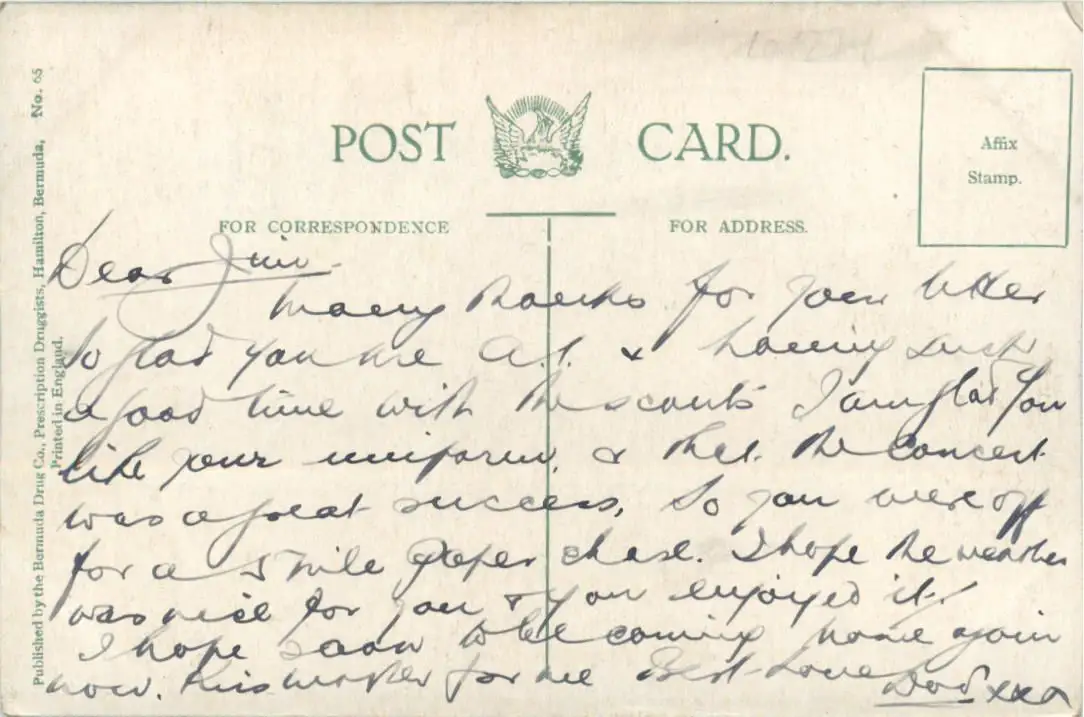 POST CARD.
Affix
Stamp.
FOR CORRESPONDENCE
FOR ADDRESS.
Published by the Bermuda Drug Co., Prescription Druggists, Hamilton, Bermuda, No. 65
Printed in England.
Dear Jim
Many thanks for your letter
So glad you are A.1. & having such
a good time with the scouts I am glad you
like your uniform, & that the concert
was a great success, So you were off
for a 5 mile paper chase. I hope the weather
was nice for you & you enjoyed it.
I hope soon to be coming home again
now. Kiss mother for me Best Love
Dad xxx